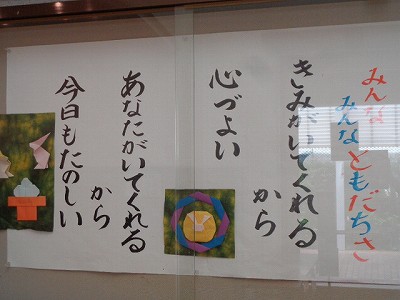 みんな
みんなともだちさ
きみがいてくれる
から
心づよい
あなたがいてくれる
から
今日もたのしい